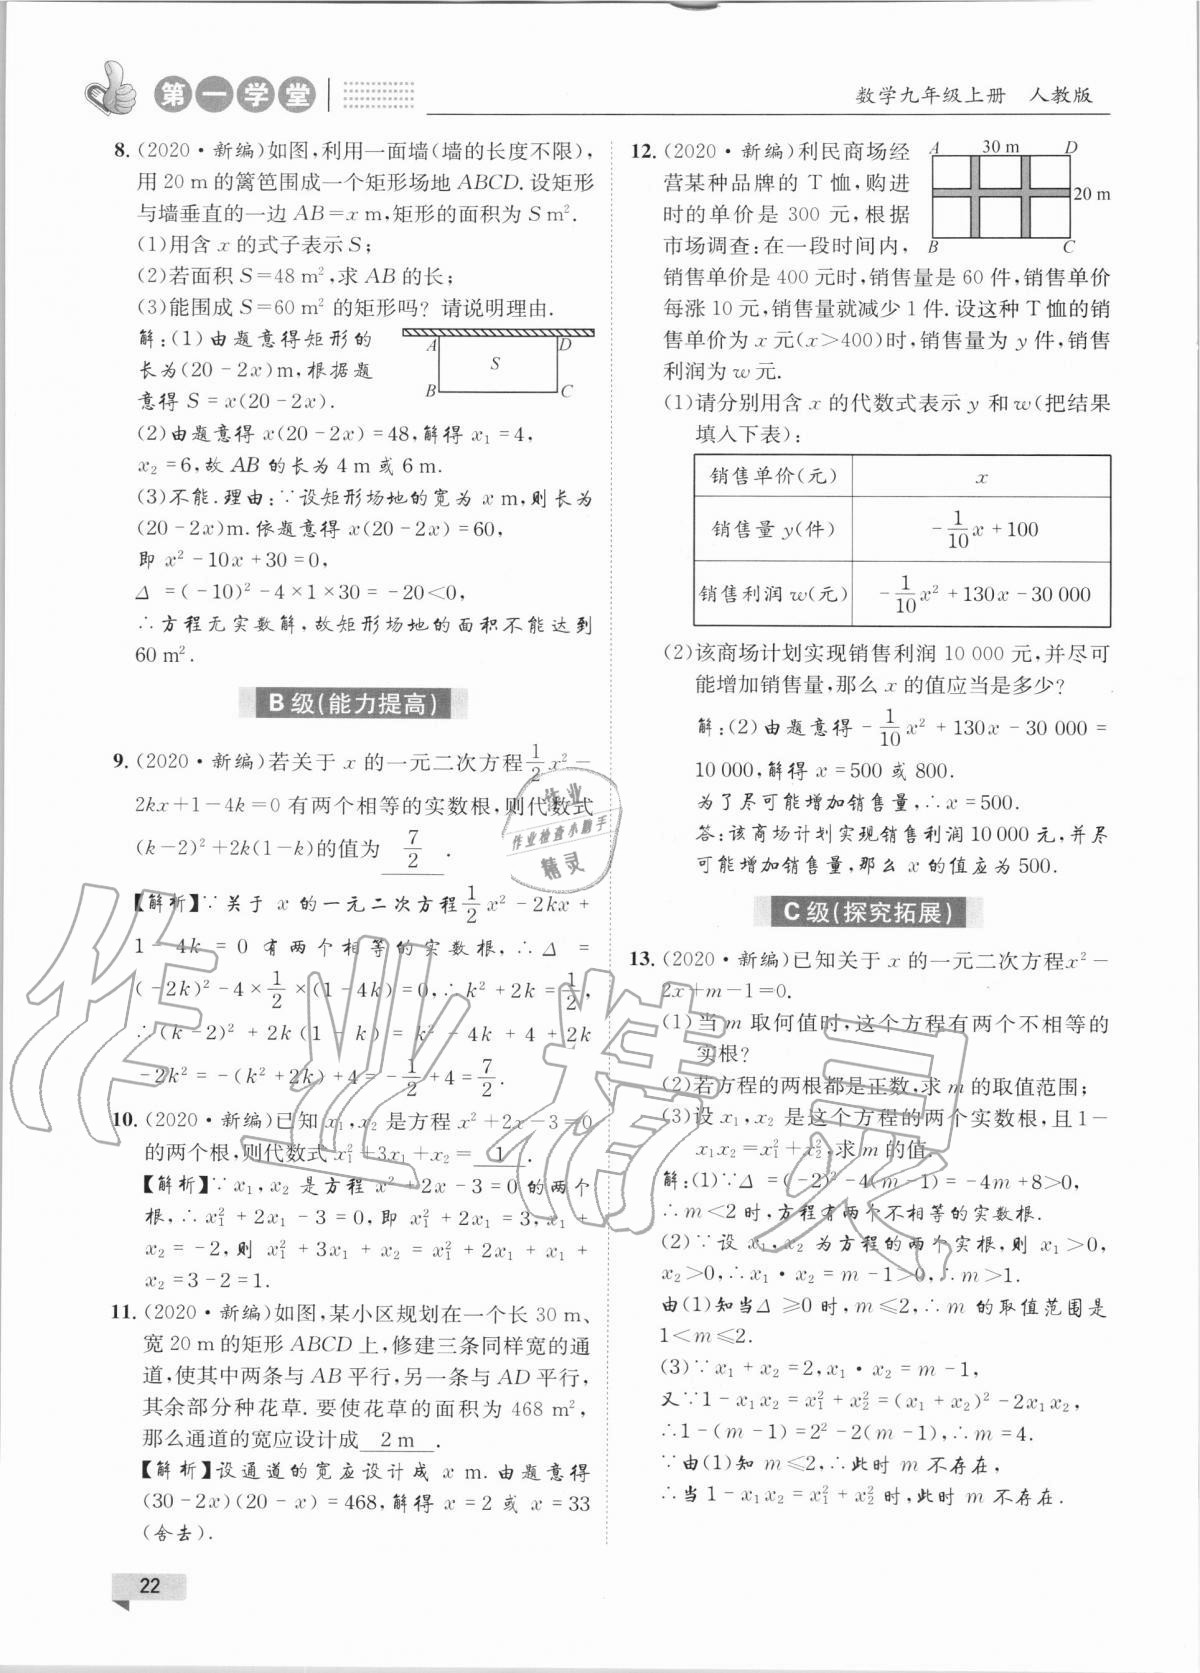 第一学堂
数学九年级上册 人教版
8.(2020·新编)如图,利用一面墙(墙的长度不限),
用20 m的篱笆围成一个矩形场地ABCD.设矩形
与墙垂直的一边AB=x m,矩形的面积为S m².
(1)用含x的式子表示S;
(2)若面积S=48 m²,求AB的长;
(3)能围成S=60 m²的矩形吗?请说明理由.
解:(1)由题意得矩形的
长为(20-2x)m,根据题
意得S=x(20-2x).
A D
S
B C
(2)由题意得x(20-2x)=48,解得x₁=4,
x₂=6,故AB的长为4 m或6 m.
(3)不能.理由:∵设矩形场地的宽为x m,则长为
(20-2x)m.依题意得x(20-2x)=60,
即x²-10x+30=0,
Δ=(-10)²-4×1×30=-20<0,
∴方程无实数解,故矩形场地的面积不能达到
60 m².
B级(能力提高)
9.(2020·新编)若关于x的一元二次方程1/2x²-
2kx+1-4k=0有两个相等的实数根,则代数式
(k-2)²+2k(1-k)的值为 7/2 .
【解析】∵关于x的一元二次方程1/2x²-2kx+
1-4k=0有两个相等的实数根,∴Δ=
(-2k)²-4×1/2×(1-4k)=0,∴k²+2k=1/2,
∴(k-2)²+2k(1-k)=k²-4k+4+2k
-2k²=-(k²+2k)+4=-1/2+4=7/2.
10.(2020·新编)已知x₁,x₂是方程x²+2x-3=0
的两个根,则代数式x₁²+3x₁+x₂= 1 .
【解析】∵x₁,x₂是方程x²+2x-3=0的两个
根,∴x₁²+2x₁-3=0,即x₁²+2x₁=3,x₁+
x₂=-2,则x₁²+3x₁+x₂=x₁²+2x₁+x₁+
x₂=3-2=1.
11.(2020·新编)如图,某小区规划在一个长30 m、
宽20 m的矩形ABCD上,修建三条同样宽的通
道,使其中两条与AB平行,另一条与AD平行,
其余部分种花草.要使花草的面积为468 m²,
那么通道的宽应设计成 2 m .
【解析】设通道的宽应设计成x m.由题意得
(30-2x)(20-x)=468,解得x=2或x=33
(舍去).
22
12.(2020·新编)利民商场经
营某种品牌的T恤,购进
时的单价是300元,根据
市场调查:在一段时间内,
A 30 m D
20 m
B C
销售单价是400元时,销售量是60件,销售单价
每涨10元,销售量就减少1件.设这种T恤的销
售单价为x元(x>400)时,销售量为y件,销售
利润为w元.
(1)请分别用含x的代数式表示y和w(把结果
填入下表):
销售单价(元) x
销售量y(件) -1/10x+100
销售利润w(元) -1/10x²+130x-30 000
(2)该商场计划实现销售利润10 000元,并尽可
能增加销售量,那么x的值应当是多少?
解:(2)由题意得-1/10x²+130x-30 000=
10 000,解得x=500或800.
为了尽可能增加销售量,∴x=500.
答:该商场计划实现销售利润10 000元,并尽
可能增加销售量,那么x的值应为500.
C级(探究拓展)
13.(2020·新编)已知关于x的一元二次方程x²-
2x+m-1=0.
(1)当m取何值时,这个方程有两个不相等的
实根?
(2)若方程的两根都是正数,求m的取值范围;
(3)设x₁,x₂是这个方程的两个实数根,且1-
x₁x₂=x₁²+x₂²,求m的值.
解:(1)∵Δ=(-2)²-4(m-1)=-4m+8>0,
∴m<2时,方程有两个不相等的实数根.
(2)∵设x₁,x₂为方程的两个实根,则x₁>0,
x₂>0,∴x₁·x₂=m-1>0,∴m>1.
由(1)知当Δ≥0时,m≤2,∴m的取值范围是
1<m≤2.
(3)∵x₁+x₂=2,x₁·x₂=m-1,
又∵1-x₁x₂=x₁²+x₂²=(x₁+x₂)²-2x₁x₂,
∴1-(m-1)=2²-2(m-1),∴m=4.
∵由(1)知m≤2,∴此时m不存在,
∴当1-x₁x₂=x₁²+x₂²时,此时m不存在.
作业
作业检查小助手
精灵
作业精灵